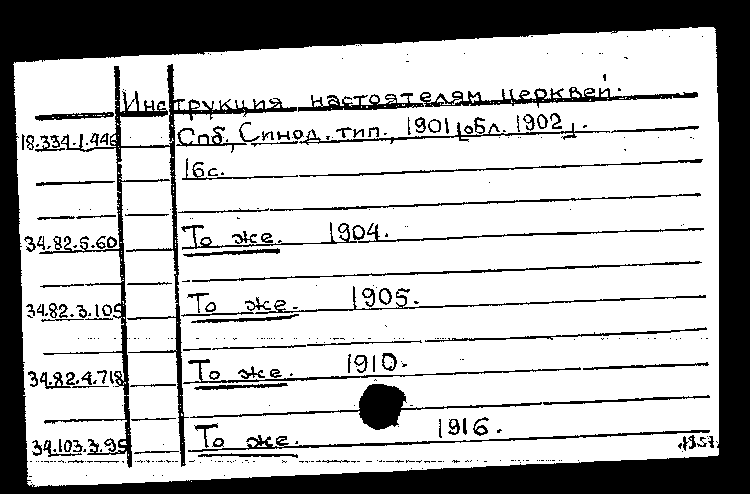 Инструкция настоятелям церквей.
18.334.1.446 Спб., Синод. тип., 1901 [обл. 1902].
16с.
34.82.5.60 То же. 1904.
34.82.3.105 То же. 1905.
34.82.4.718 То же. 1910.
34.103.3.95 То же. 1916.